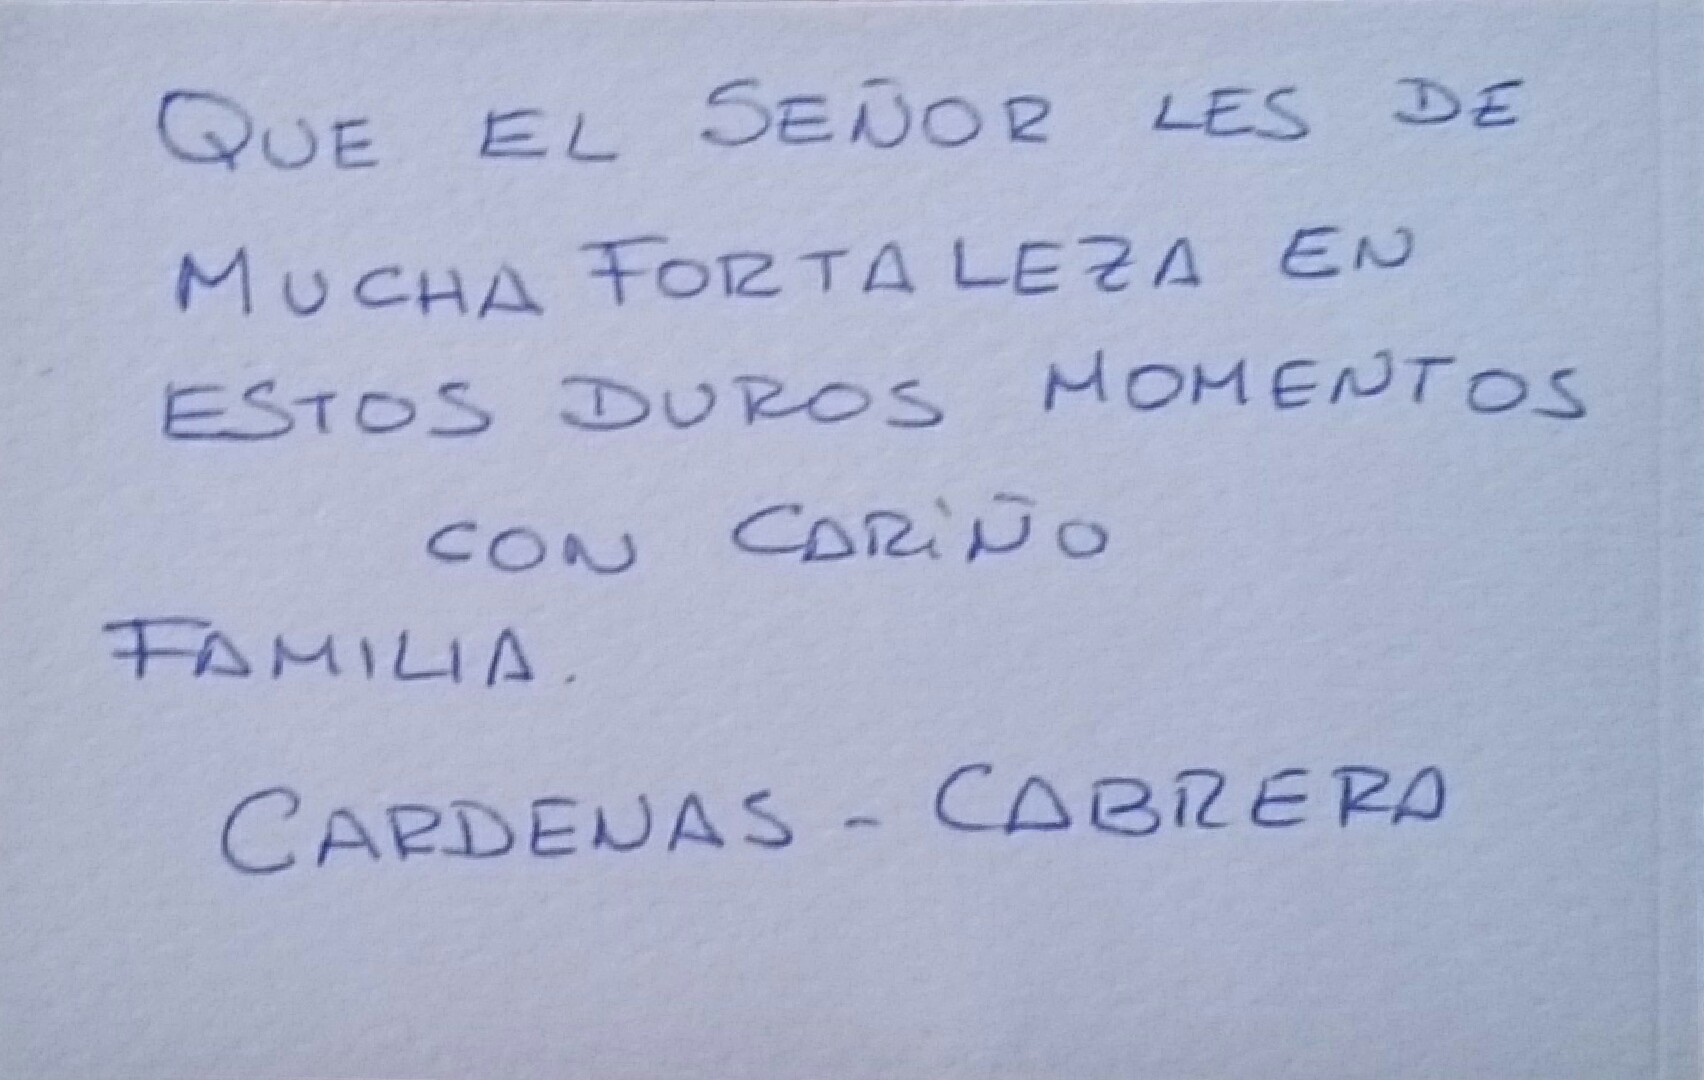 QUE EL SEÑOR LES DE
MUCHA FORTALEZA EN
ESTOS DUROS MOMENTOS
CON CARiÑO
FAMILIA.
CARDENAS - CABRERA